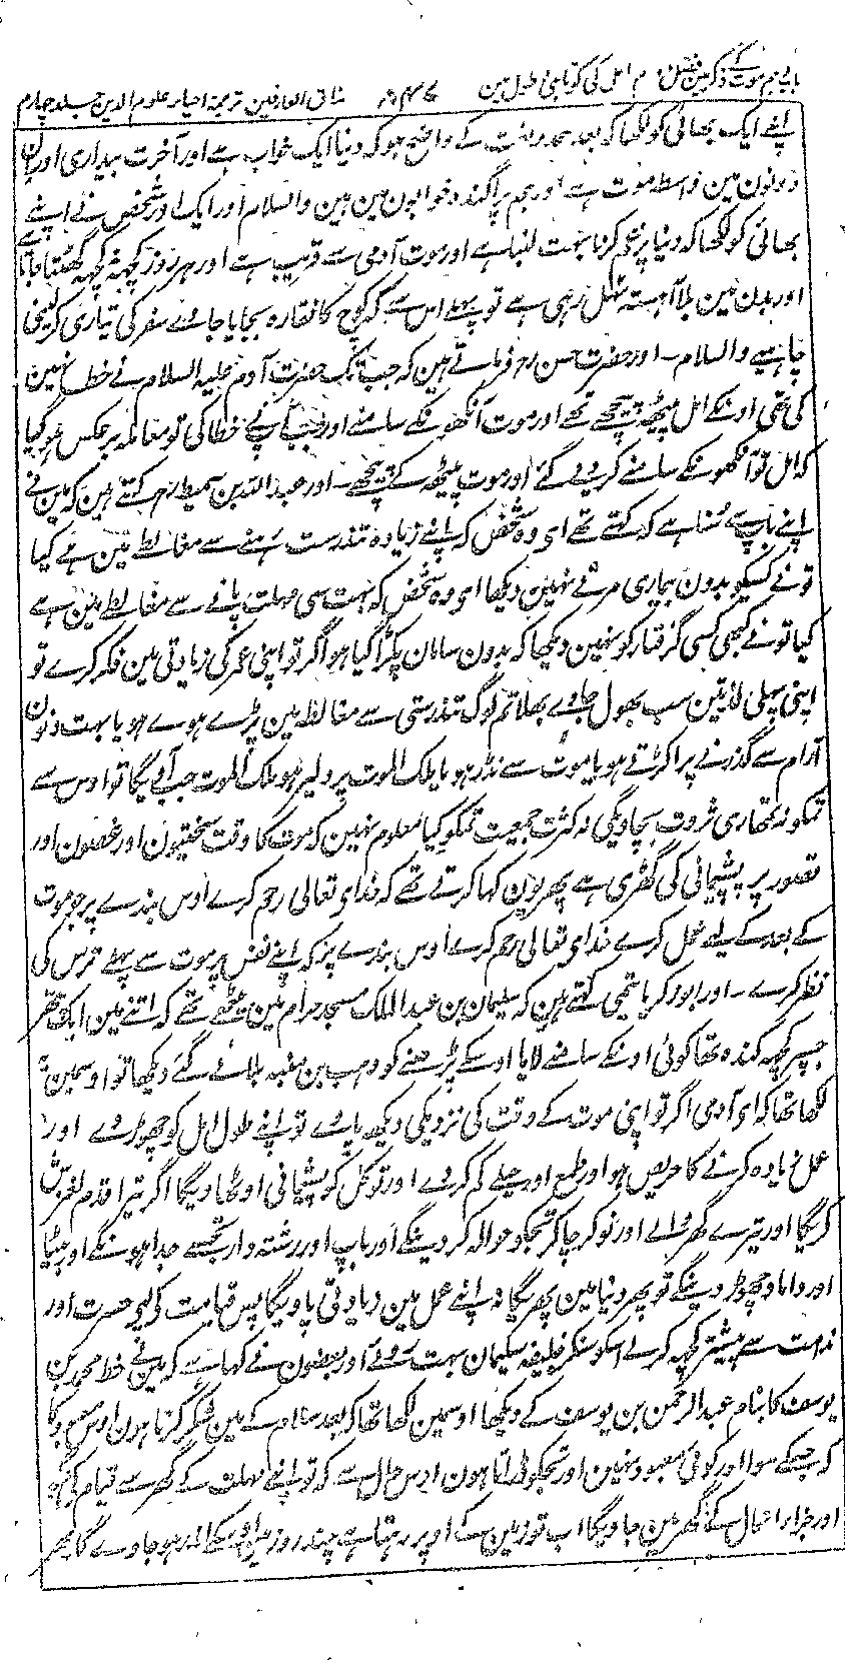 باب دہم موت کے ذکر مین فصل دوم امل کی کوتاہی و طول مین مذاق العارفین ترجمۂ احیاء علوم الدین جلد چہارم
اپنے ایک بھائی کو لکھا کہ بعد حمد و نعت کے واضح ہو کہ دنیا ایک خواب ہے اور آخرت بیداری اور ان
دونون مین واسطہ موت ہے اور ہم پراگندہ خوابون مین ہین والسلام اور ایک اور شخص نے اپنے
بھائی کو لکھا کہ دنیا پر غم کرنا بہت لنبا ہے اور موت آدمی سے قریب ہے اور ہر روز کچھ نہ کچھ گھٹتا جاتا ہے
اور بدن مین بلا آہستہ ٹہل رہی ہے تو پہلے اس سے کہ کوچ کا نقارہ بجایا جاوے سفر کی تیاری کر لینی
چاہیے والسلام ۔ اور حضرت حسن رح فرماتے ہین کہ جب تک حضرت آدم علیہ السلام نے خطا نہین
کی تھی اونکے امل پیٹھ پیچھے تھے اور موت آنکھونکے سامنے اور جب آپ نے خطا کی تو معاملہ برعکس ہو گیا
کہ امل تو آنکھونکے سامنے کر دیے گئے اور موت پیٹھ کے پیچھے ۔ اور عبداللہ بن سمیط رح کہتے ہین کہ مین نے
اپنے باپ سے سنا ہے کہ کہتے تھے ای وہ شخص کہ اپنے زیادہ تندرست رہنے سے مغالطہ مین ہے کیا
تو نے کسیکو بدون بیماری مرتے نہین دیکھا ای وہ شخص کہ بہت سی مہلت پانے سے مغالطے مین ہے
کیا تو نے کبھی کسی گرفتار کو نہین دیکھا کہ بدون سامان پکڑا گیا ہو اگر تو اپنی عمر کی زیادتی مین فکر کرے تو
اپنی پہلی لذتین سب بھول جاوے بھلا تم لوگ تندرستی سے مغالطہ مین پڑے ہوے ہو یا بہت دنون
آرام سے گذرنے پر اکڑتے ہو یا موت سے نڈر ہو یا ملک الموت پر دلیر ہو ملک الموت جب آویگا تو اوس سے
تمکو نہ تمھاری ثروت بچاویگی نہ کثرت جمعیت تمکو کیا معلوم نہین کہ موت کا وقت سختیون اور غصون اور
قصور پر پشیمانی کی گھڑی ہے پھر یون کہا کرتے تھے کہ خدای تعالی رحم کرے اوس بندے پر جو موت
کے بعد کے لیے عمل کرے خدای تعالی رحم کرے اوس بندے پر کہ اپنے نفس پر موت سے پہلے ترس کی
نظر کرے ۔ اور ابو زکریا تیمی کہتے ہین کہ سلیمان بن عبدالملک مسجد حرام مین بیٹھے تھے کہ اتنے مین ایک پتھر
جسپر کچھ کندہ تھا کوئی اونکے سامنے لایا اوسکے پڑھنے کو وہب بن منبہ بلائے گئے دیکھا تو اوسمین یہ
لکھا تھا کہ ای آدمی اگر تو اپنی موت کے وقت کی نزدیکی دیکھ پاوے تو اپنے طول امل کو چھوڑ دے اور
عمل زیادہ کرنے کا حریص ہو اور طمع اور حیلے کم کر دے اور تو کل کو پشیمانی اوٹھاویگا اگر تیرا قدم لغزش
کریگا اور تیرے گھر والے اور نوکر چاکر تجکو حوالہ کر دینگے اور باپ اور رشتہ دار تجھسے جدا ہونگے اور بیٹا
اور داماد چھوڑ دینگے تو پھر دنیا مین پھریگا نہ اپنے عمل مین زیادتی پاویگا پس قیامت کے لیے حسرت اور
ندامت سے پیشتر کچھ کر لے اسکو سنکر خلیفہ سلیمان بہت روئے اور بعضون نے کہا ہے کہ مین نے خط محمد بن
یوسف کا بنام عبدالرحمن بن یوسف کے دیکھا اوسمین لکھا تھا کہ بعد سلام کے مین شکر کرتا ہون اوس معبود کا
کہ جسکے سوا اور کوئی معبود نہین اور تجکو ڈراتا ہون اوس حال سے کہ تو اپنے مہلت کے گھر سے قیام کی جگہ
اور جزاء اعمال کے گھر مین جاویگا اب تو زمین کے اوپر رہتا ہے چند روز مین اوسکے اندر ہو جاوے گا پھر